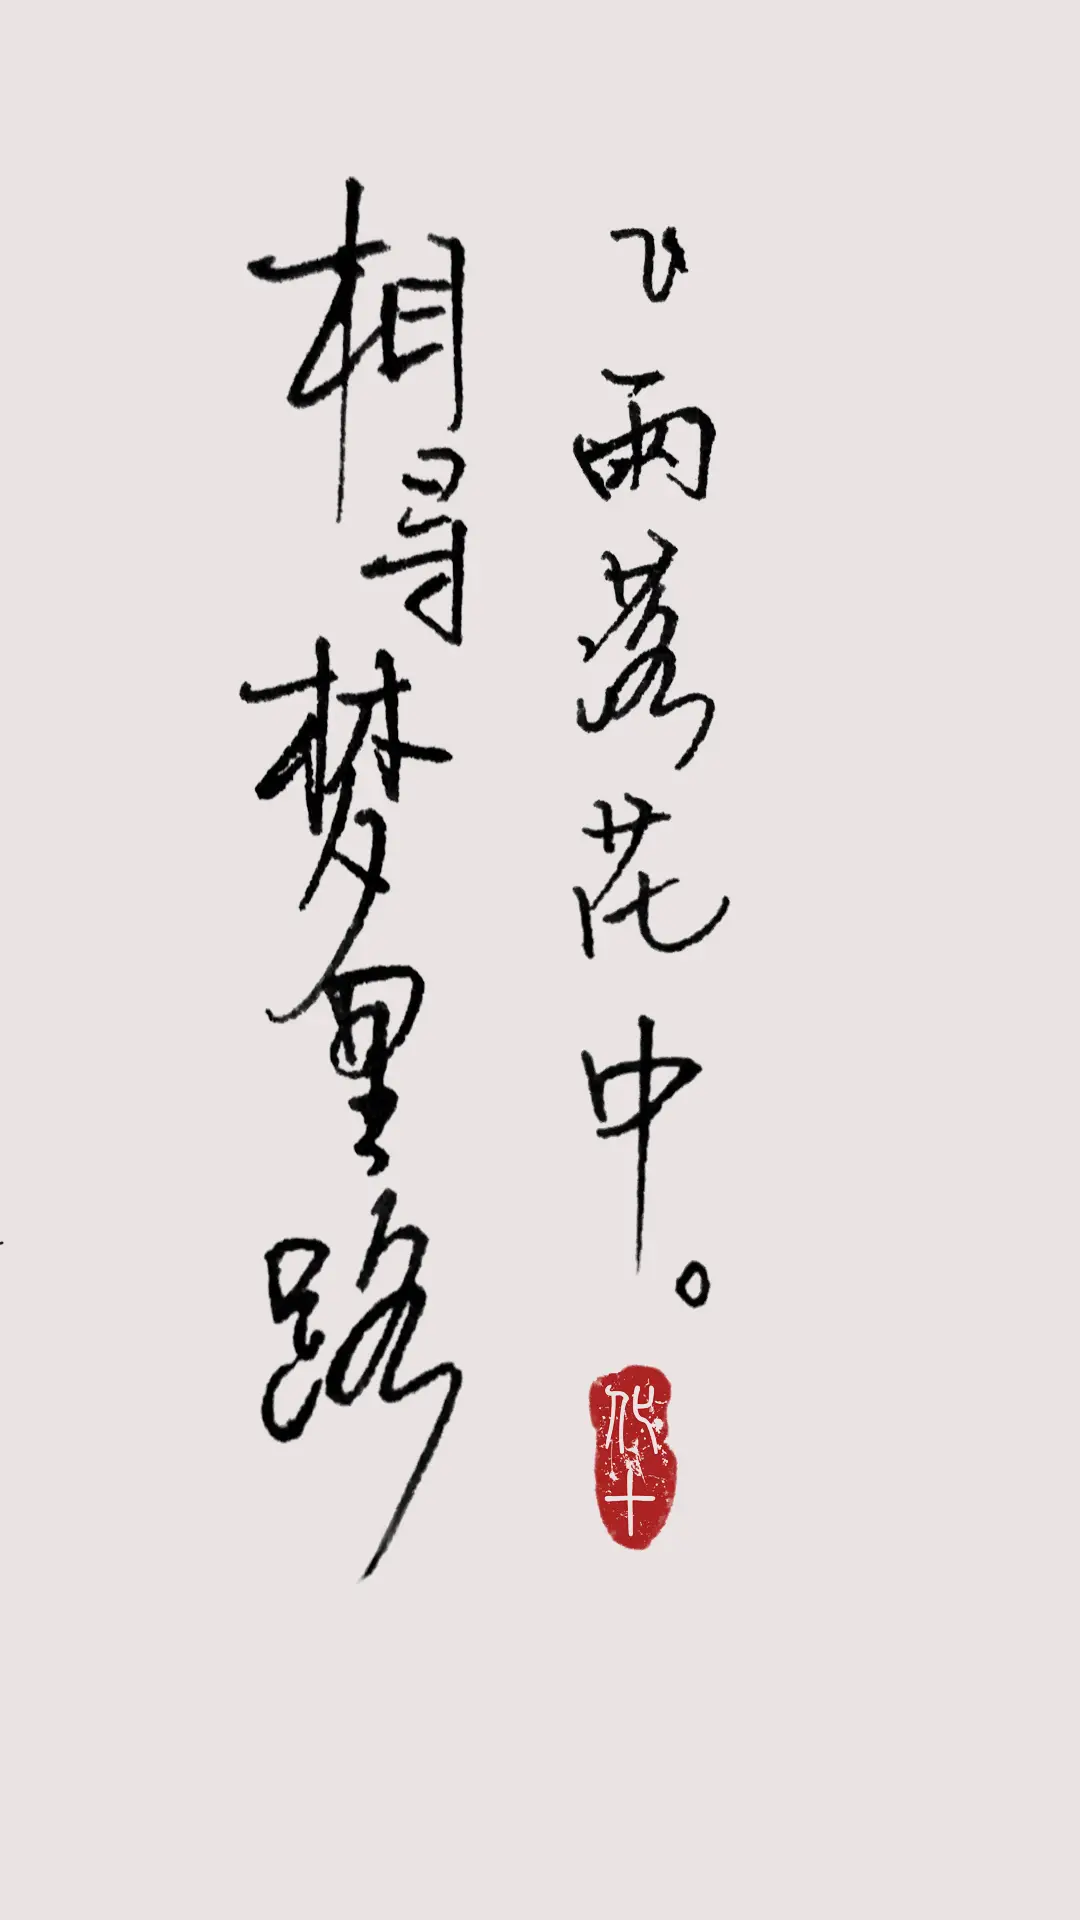 相寻梦里路
飞雨落花中。